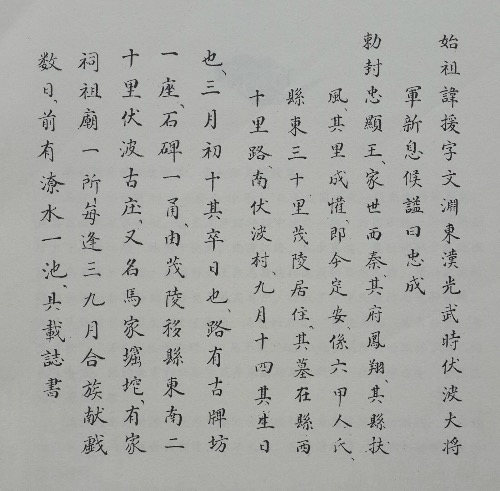 始祖諱援字文淵東漢光武時伏波大将
軍新息候諡曰忠成
勅封忠顯王、家世西秦、其府鳳翔、其縣扶
風、其里成懽、即今定安、係六甲人氏、
縣東三十里茂陵居住、其墓在縣西
十里路、南伏波村、九月十四其生日
也、三月初十其卒日也、路有古牌坊
一座、石碑一甬、由茂陵移縣東南二
十里伏波古庄、又名馬家堀坨、有家
祠祖廟一所、每逢三九月合族献戯
数日、前有潦水一池、具載誌書